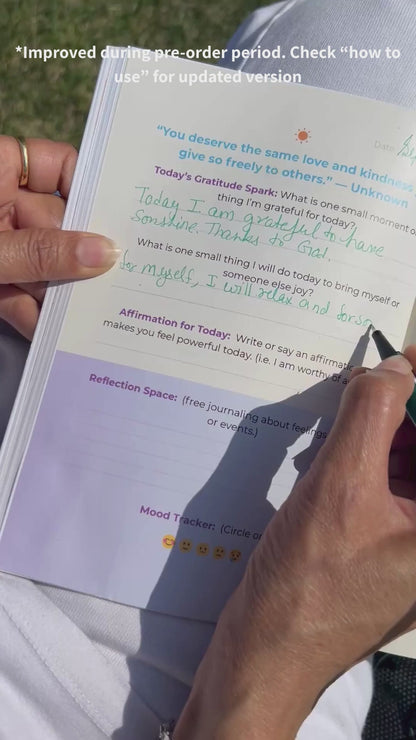 *Improved during pre-order period. Check “how to
use” for updated version
Date:
“You deserve the same love and kindness
give so freely to others.” — Unknown
Today's Gratitude Spark: What is one small moment or
thing I'm grateful for today?
Today I am grateful to have
Sonshine. Thanks to God.
What is one small thing I will do today to bring myself or
someone else joy?
for myself, I will relax and for so
Affirmation for Today: Write or say an affirmati
makes you feel powerful today. (i.e. I am worthy of a
Reflection Space: (free journaling about feelings
or events.)
Mood Tracker: (Circle or